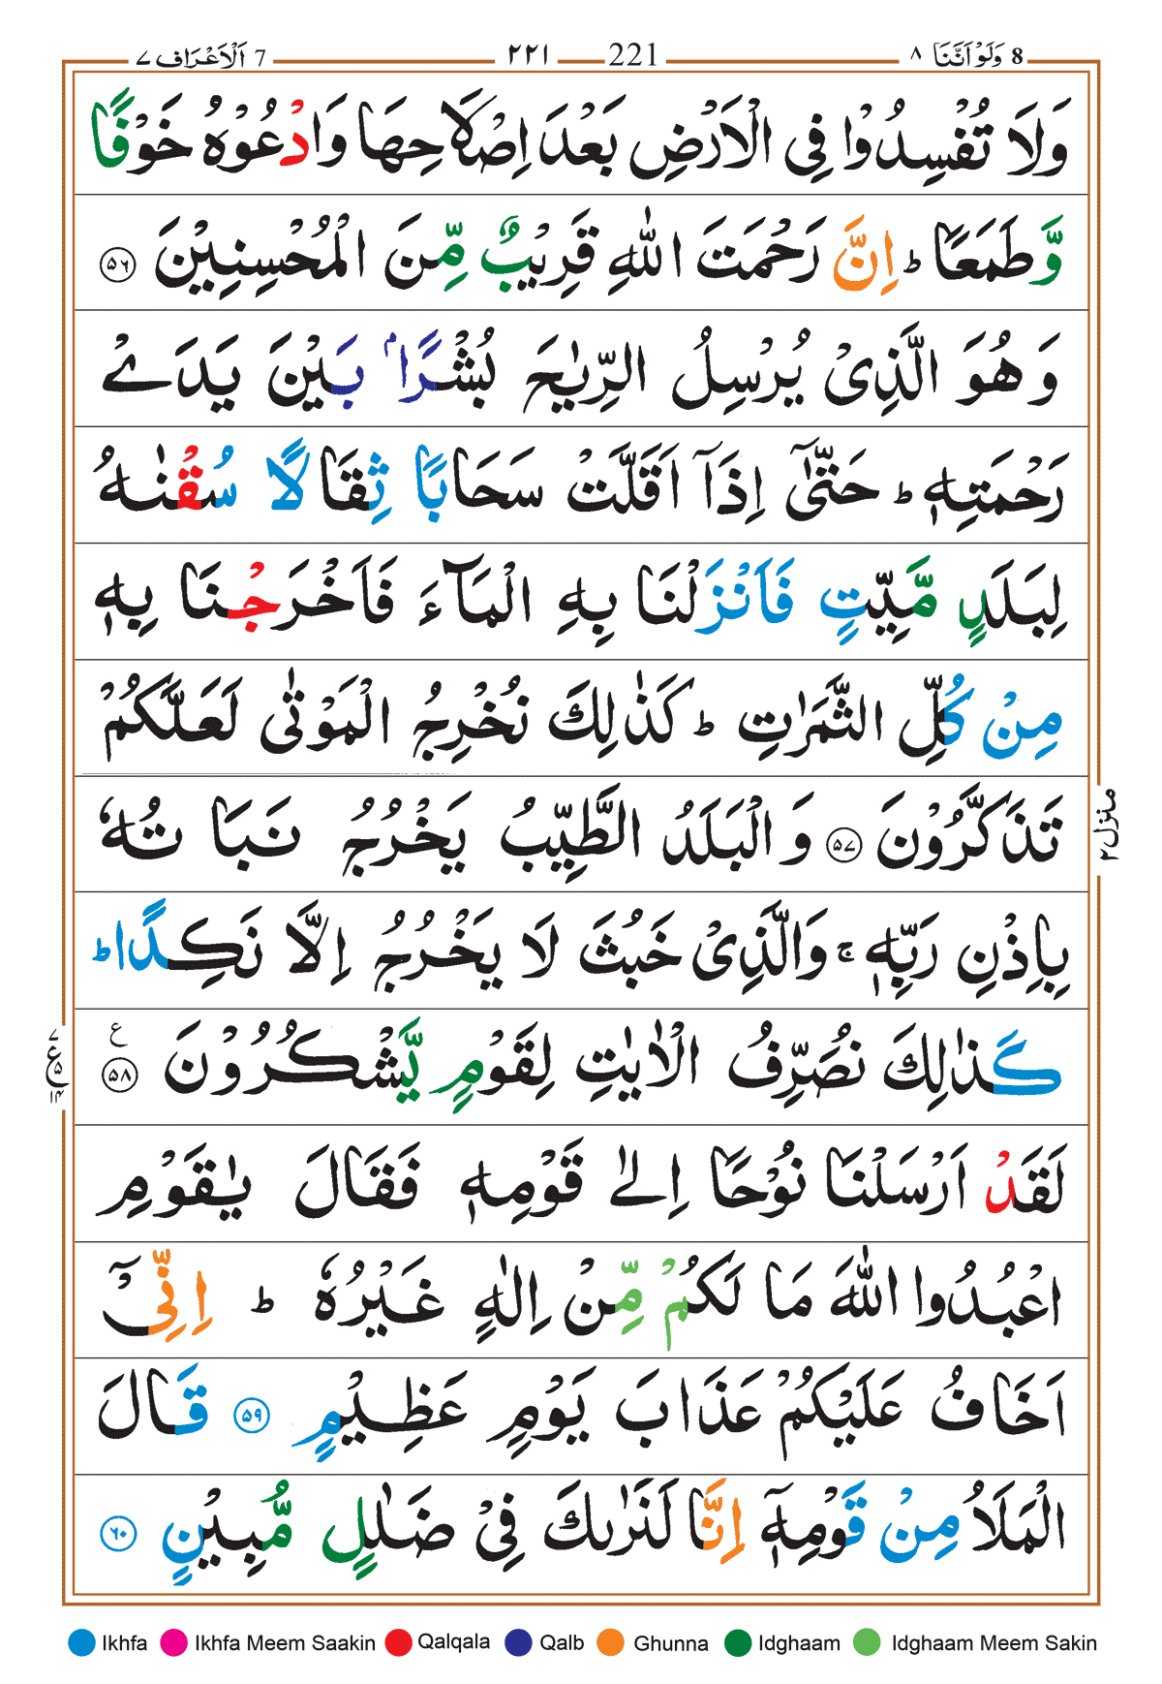 8 وَلَوْ اَنَّنَا ٨ 221 ٢٢١ 7 اَلْاَعْرَاف ٧
وَلَا تُفْسِدُوْا فِى الْاَرْضِ بَعْدَ اِصْلَاحِهَا وَادْعُوْهُ خَوْفًا
وَّطَمَعًا ؕ اِنَّ رَحْمَتَ اللّٰهِ قَرِيْبٌ مِّنَ الْمُحْسِنِيْنَ ۝٥٦
وَهُوَ الَّذِىْ يُرْسِلُ الرِّيٰحَ بُشْرًاۢ بَيْنَ يَدَىْ
رَحْمَتِهٖ ؕ حَتّٰٓى اِذَاۤ اَقَلَّتْ سَحَابًا ثِقَالًا سُقْنٰهُ
لِبَلَدٍ مَّيِّتٍ فَاَنْزَلْنَا بِهِ الْمَآءَ فَاَخْرَجْنَا بِهٖ
مِنْ كُلِّ الثَّمَرٰتِ ؕ كَذٰلِكَ نُخْرِجُ الْمَوْتٰى لَعَلَّكُمْ
تَذَكَّرُوْنَ ۝٥٧ وَالْبَلَدُ الطَّيِّبُ يَخْرُجُ نَبَاتُهٗ
بِاِذْنِ رَبِّهٖ ۚ وَالَّذِىْ خَبُثَ لَا يَخْرُجُ اِلَّا نَكِدًا ؕ
كَذٰلِكَ نُصَرِّفُ الْاٰيٰتِ لِقَوْمٍ يَّشْكُرُوْنَ ۝٥٨ ع
لَقَدْ اَرْسَلْنَا نُوْحًا اِلٰى قَوْمِهٖ فَقَالَ يٰقَوْمِ
اعْبُدُوا اللّٰهَ مَا لَكُمْ مِّنْ اِلٰهٍ غَيْرُهٗ ؕ اِنِّىْۤ
اَخَافُ عَلَيْكُمْ عَذَابَ يَوْمٍ عَظِيْمٍ ۝٥٩ قَالَ
الْمَلَاُ مِنْ قَوْمِهٖۤ اِنَّا لَنَرٰىكَ فِىْ ضَلٰلٍ مُّبِيْنٍ ۝٦٠
منزل ٢
٧ ع ٥ ١٤
Ikhfa Ikhfa Meem Saakin Qalqala Qalb Ghunna Idghaam Idghaam Meem Sakin